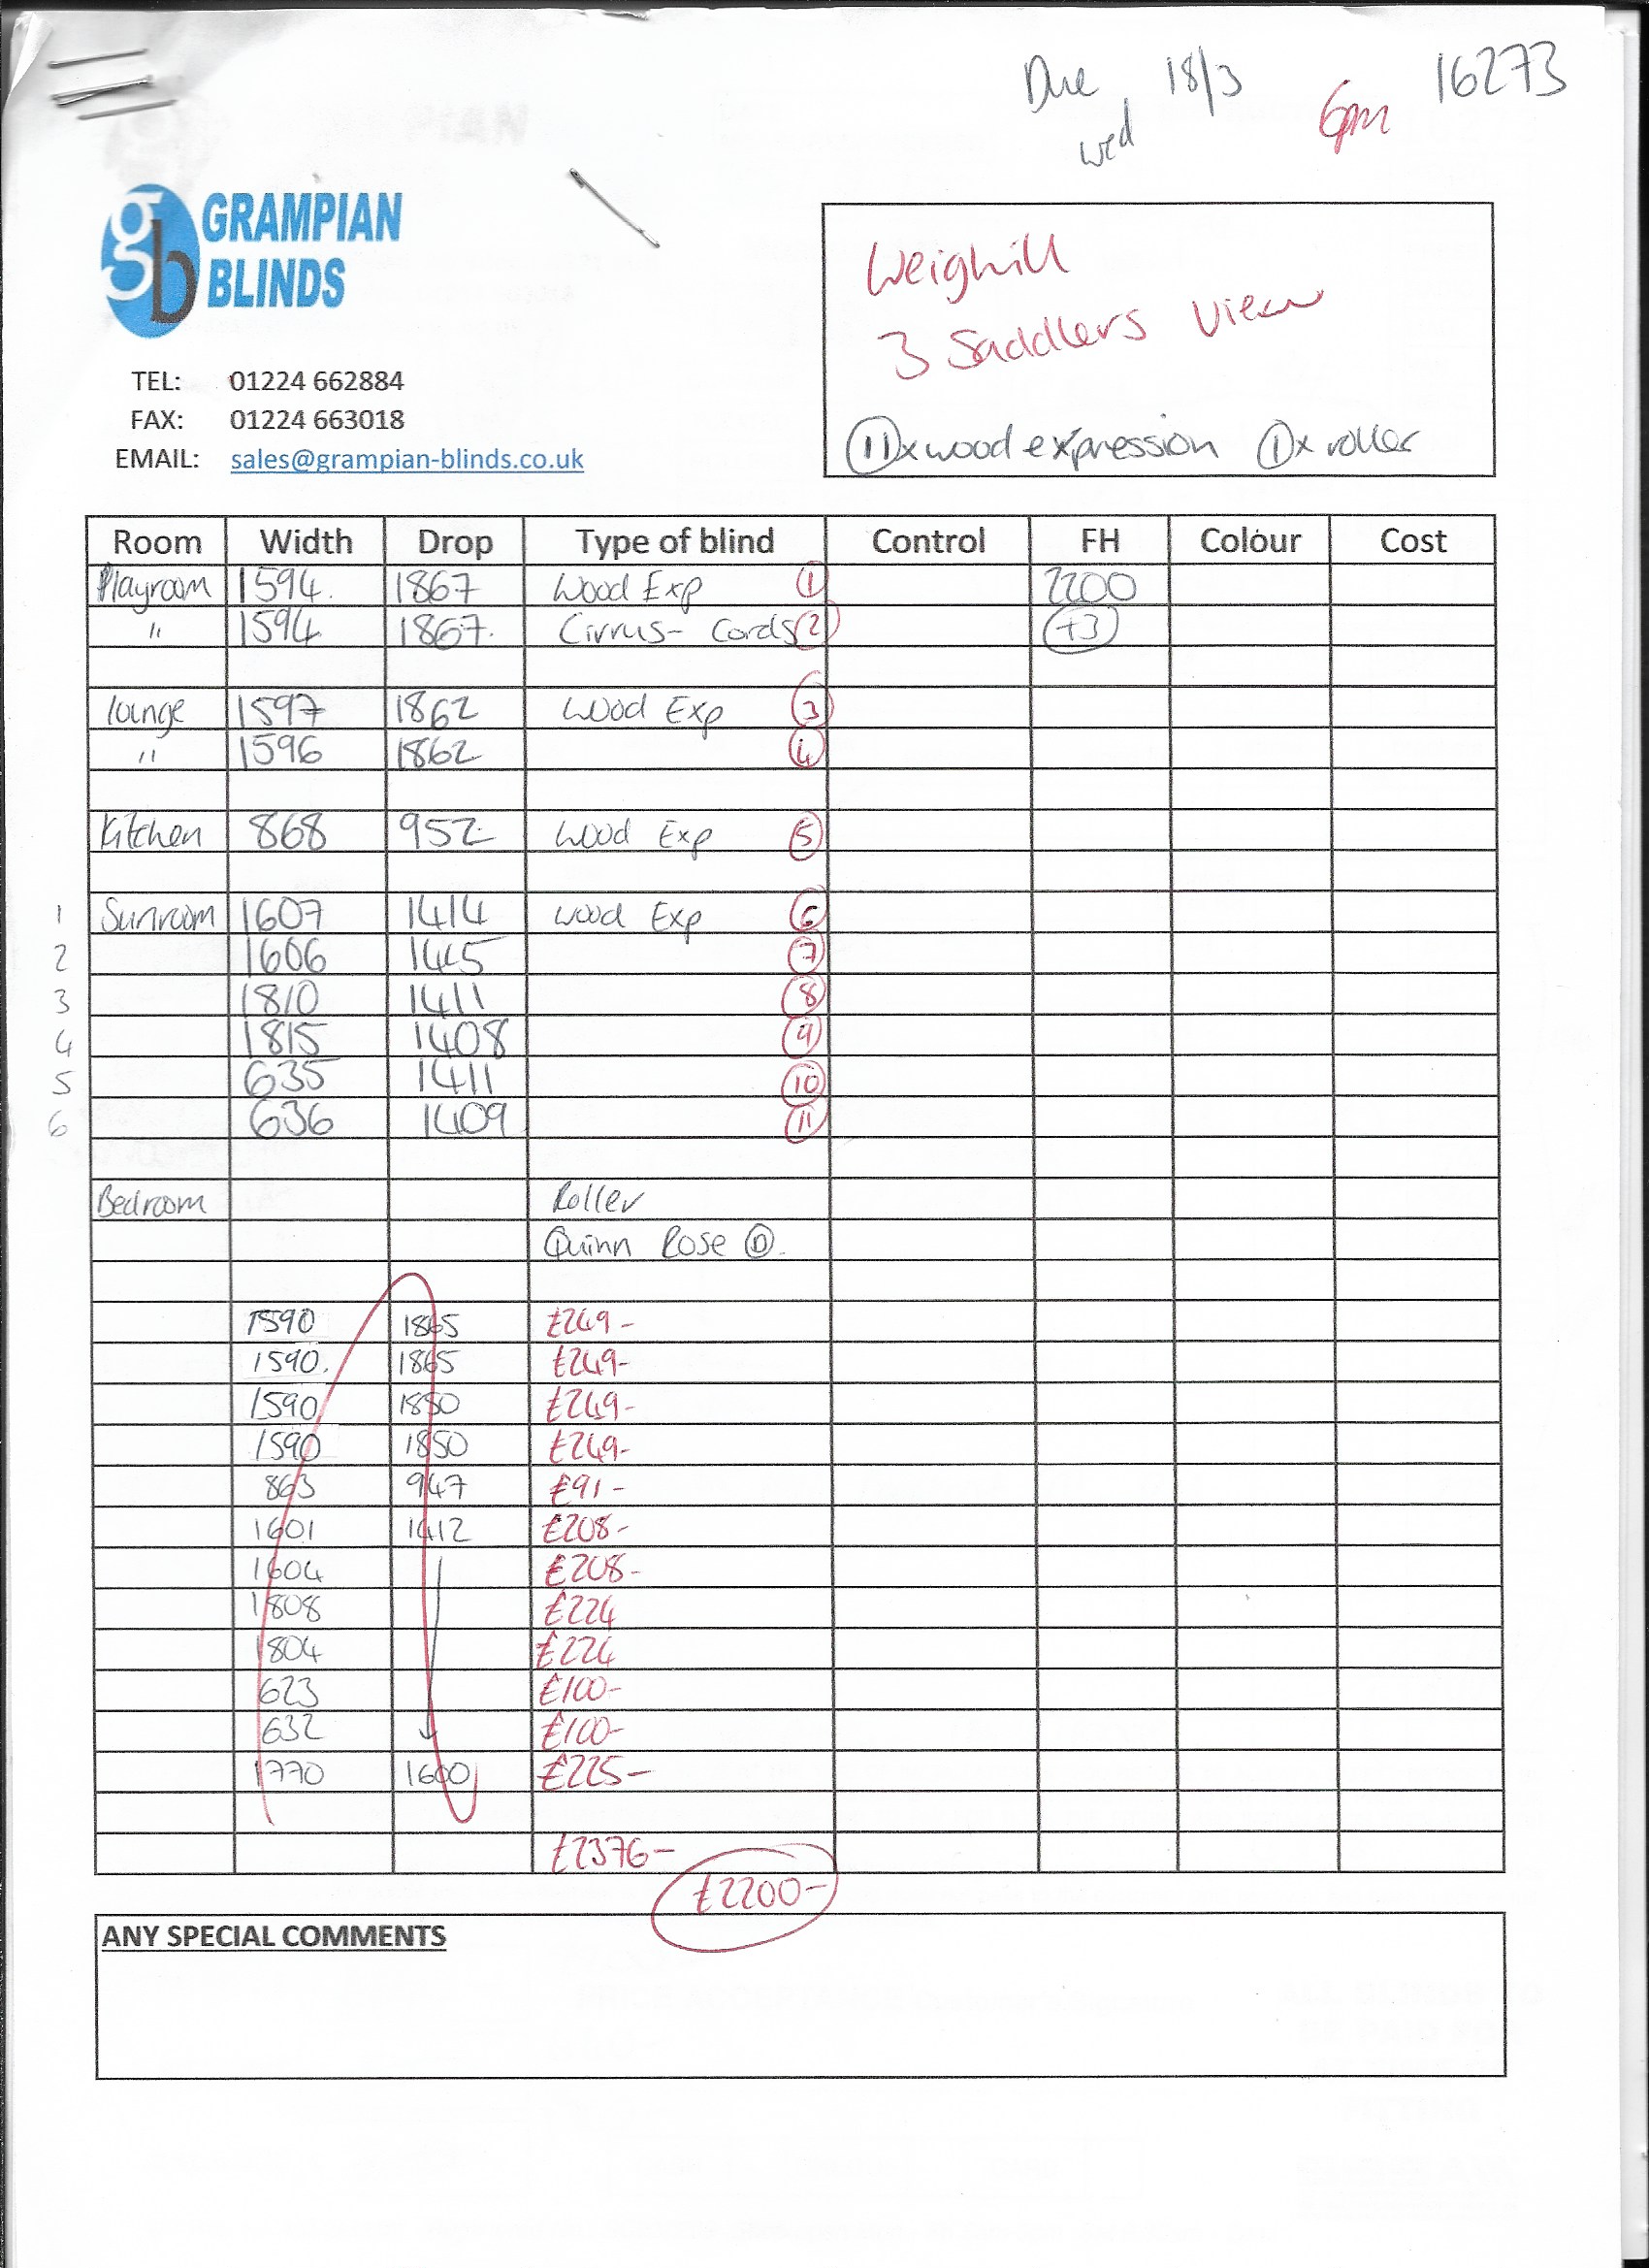 Due 18/3 16273
wed 6pm
gb GRAMPIAN
BLINDS
Weighill
3 Saddlers View
TEL: 01224 662884
FAX: 01224 663018
EMAIL: sales@grampian-blinds.co.uk
11 x wood expression 1 x roller
Room Width Drop Type of blind Control FH Colour Cost
Playroom 1594 1867 Wood Exp 1 2200
" 1594 1867 Cirrus- Cords 2 +3
lounge 1597 1862 Wood Exp 3
" 1596 1862 4
Kitchen 868 952 Wood Exp 5
1 Sunroom 1607 1414 Wood Exp 6
2 1606 1415 7
3 1810 1411 8
4 1815 1408 9
5 635 1411 10
6 636 1409 11
Bedroom Roller
Quinn Rose D
1590 1865 £249-
1590 1865 £249-
1590 1850 £249-
1590 1850 £249-
863 947 £91-
1601 1412 £208-
1604 £208-
1808 £224
1804 £224
623 £100-
632 £100-
1770 1600 £225-
£2376-
£2200-
ANY SPECIAL COMMENTS